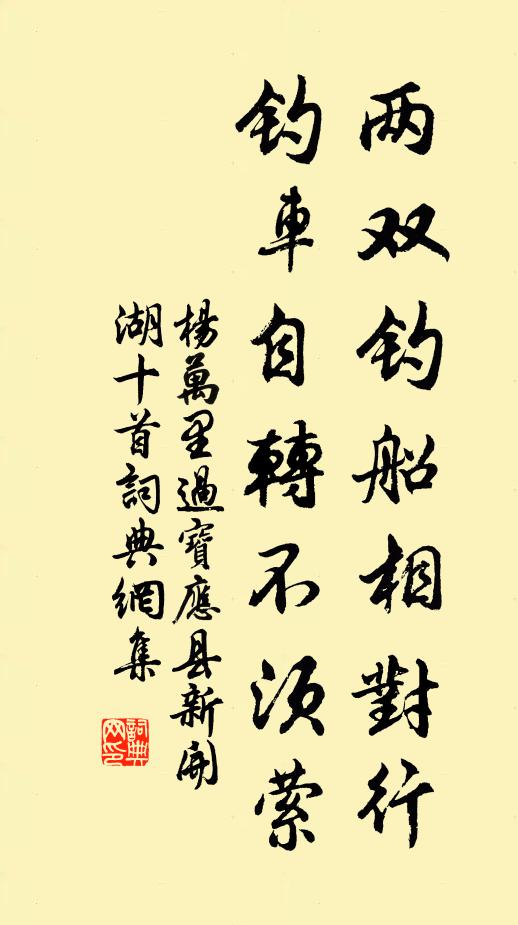 两双钓船相對行
钓車自轉不須萦
楊萬里過寶應县新開
湖十首詞典網集
詞典
网印